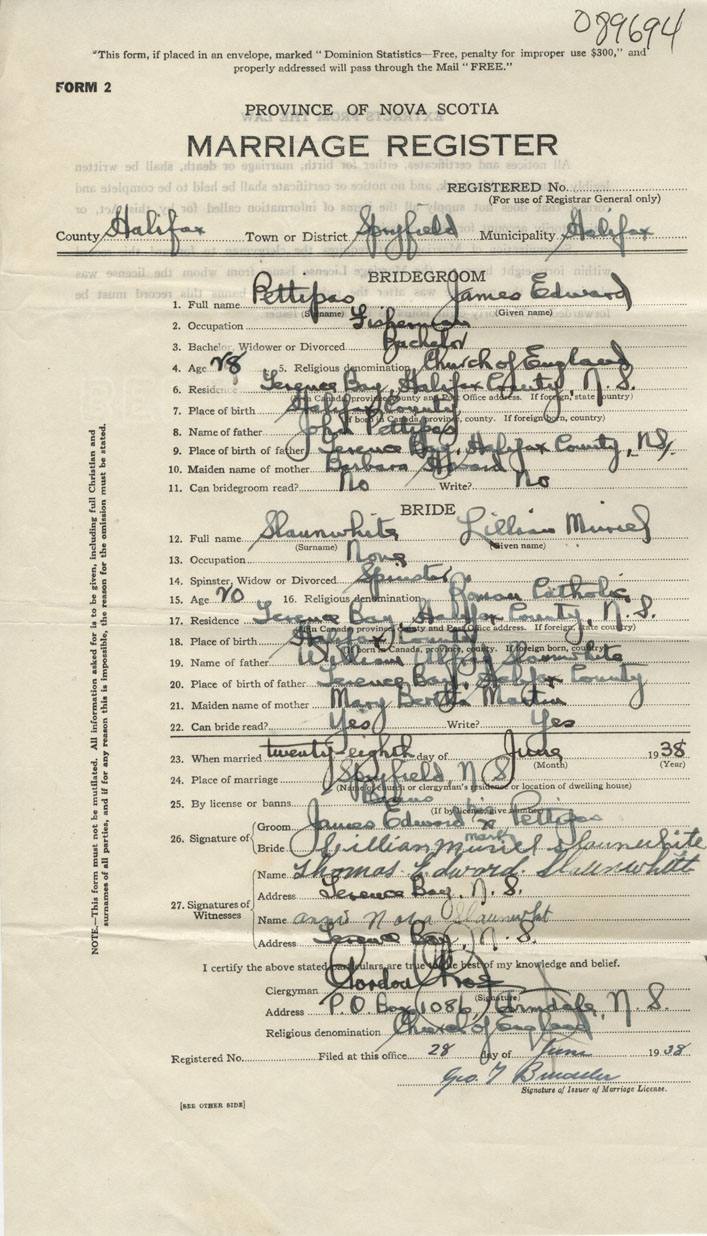 089694
"This form, if placed in an envelope, marked "Dominion Statistics—Free, penalty for improper use $300," and
properly addressed will pass through the Mail "FREE."
FORM 2
PROVINCE OF NOVA SCOTIA
MARRIAGE REGISTER
REGISTERED No.
(For use of Registrar General only)
County Halifax Town or District Spryfield Municipality Halifax
BRIDEGROOM
1. Full name Pettipas James Edward
(Surname) (Given name)
2. Occupation Fisherman
3. Bachelor, Widower or Divorced Bachelor
4. Age 28 5. Religious denomination Church of England
6. Residence Terence Bay, Halifax County, N.S.
(In Canada, province, county and Post Office address. If foreign, state country)
7. Place of birth Halifax County
(If born in Canada, province, county. If foreign born, country)
8. Name of father John Pettipas
9. Place of birth of father Terence Bay, Halifax County, N.S.
10. Maiden name of mother Barbara
11. Can bridegroom read? No Write? No
BRIDE
12. Full name Slaunwhite Lillian Muriel
(Surname) (Given name)
13. Occupation None
14. Spinster, Widow or Divorced Spinster
15. Age 20 16. Religious denomination Roman Catholic
17. Residence Terence Bay Halifax County, N.S.
(In Canada, province, county and Post Office address. If foreign, state country)
18. Place of birth Halifax County
(If born in Canada, province, county. If foreign born, country)
19. Name of father William Slaunwhite
20. Place of birth of father Terence Bay, Halifax County
21. Maiden name of mother Mary Bertha Martin
22. Can bride read? Yes Write? Yes
23. When married twenty-eighth day of June 1938
(Month) (Year)
24. Place of marriage Spryfield, N.S.
(Name of church or clergyman's residence or location of dwelling house)
25. By license or banns Banns
(If by license give number)
26. Signature of Groom James Edward his x mark Pettipas
Bride Lillian Muriel Slaunwhite
27. Signatures of Witnesses Name Thomas Edward Slaunwhite
Address Terence Bay, N.S.
Name Nora Slaunwhit
Address Terence Bay, N.S.
I certify the above stated particulars are true to the best of my knowledge and belief.
Clergyman Gordon
(Signature)
Address P.O Box 1086, Armdale, N.S.
Religious denomination Church of England
Registered No. Filed at this office 28 day of June 1938
Geo. T
Signature of Issuer of Marriage License.
[SEE OTHER SIDE]
NOTE.—This form must not be mutilated. All information asked for is to be given, including full Christian and
surnames of all parties, and if for any reason this is impossible, the reason for the omission must be stated.